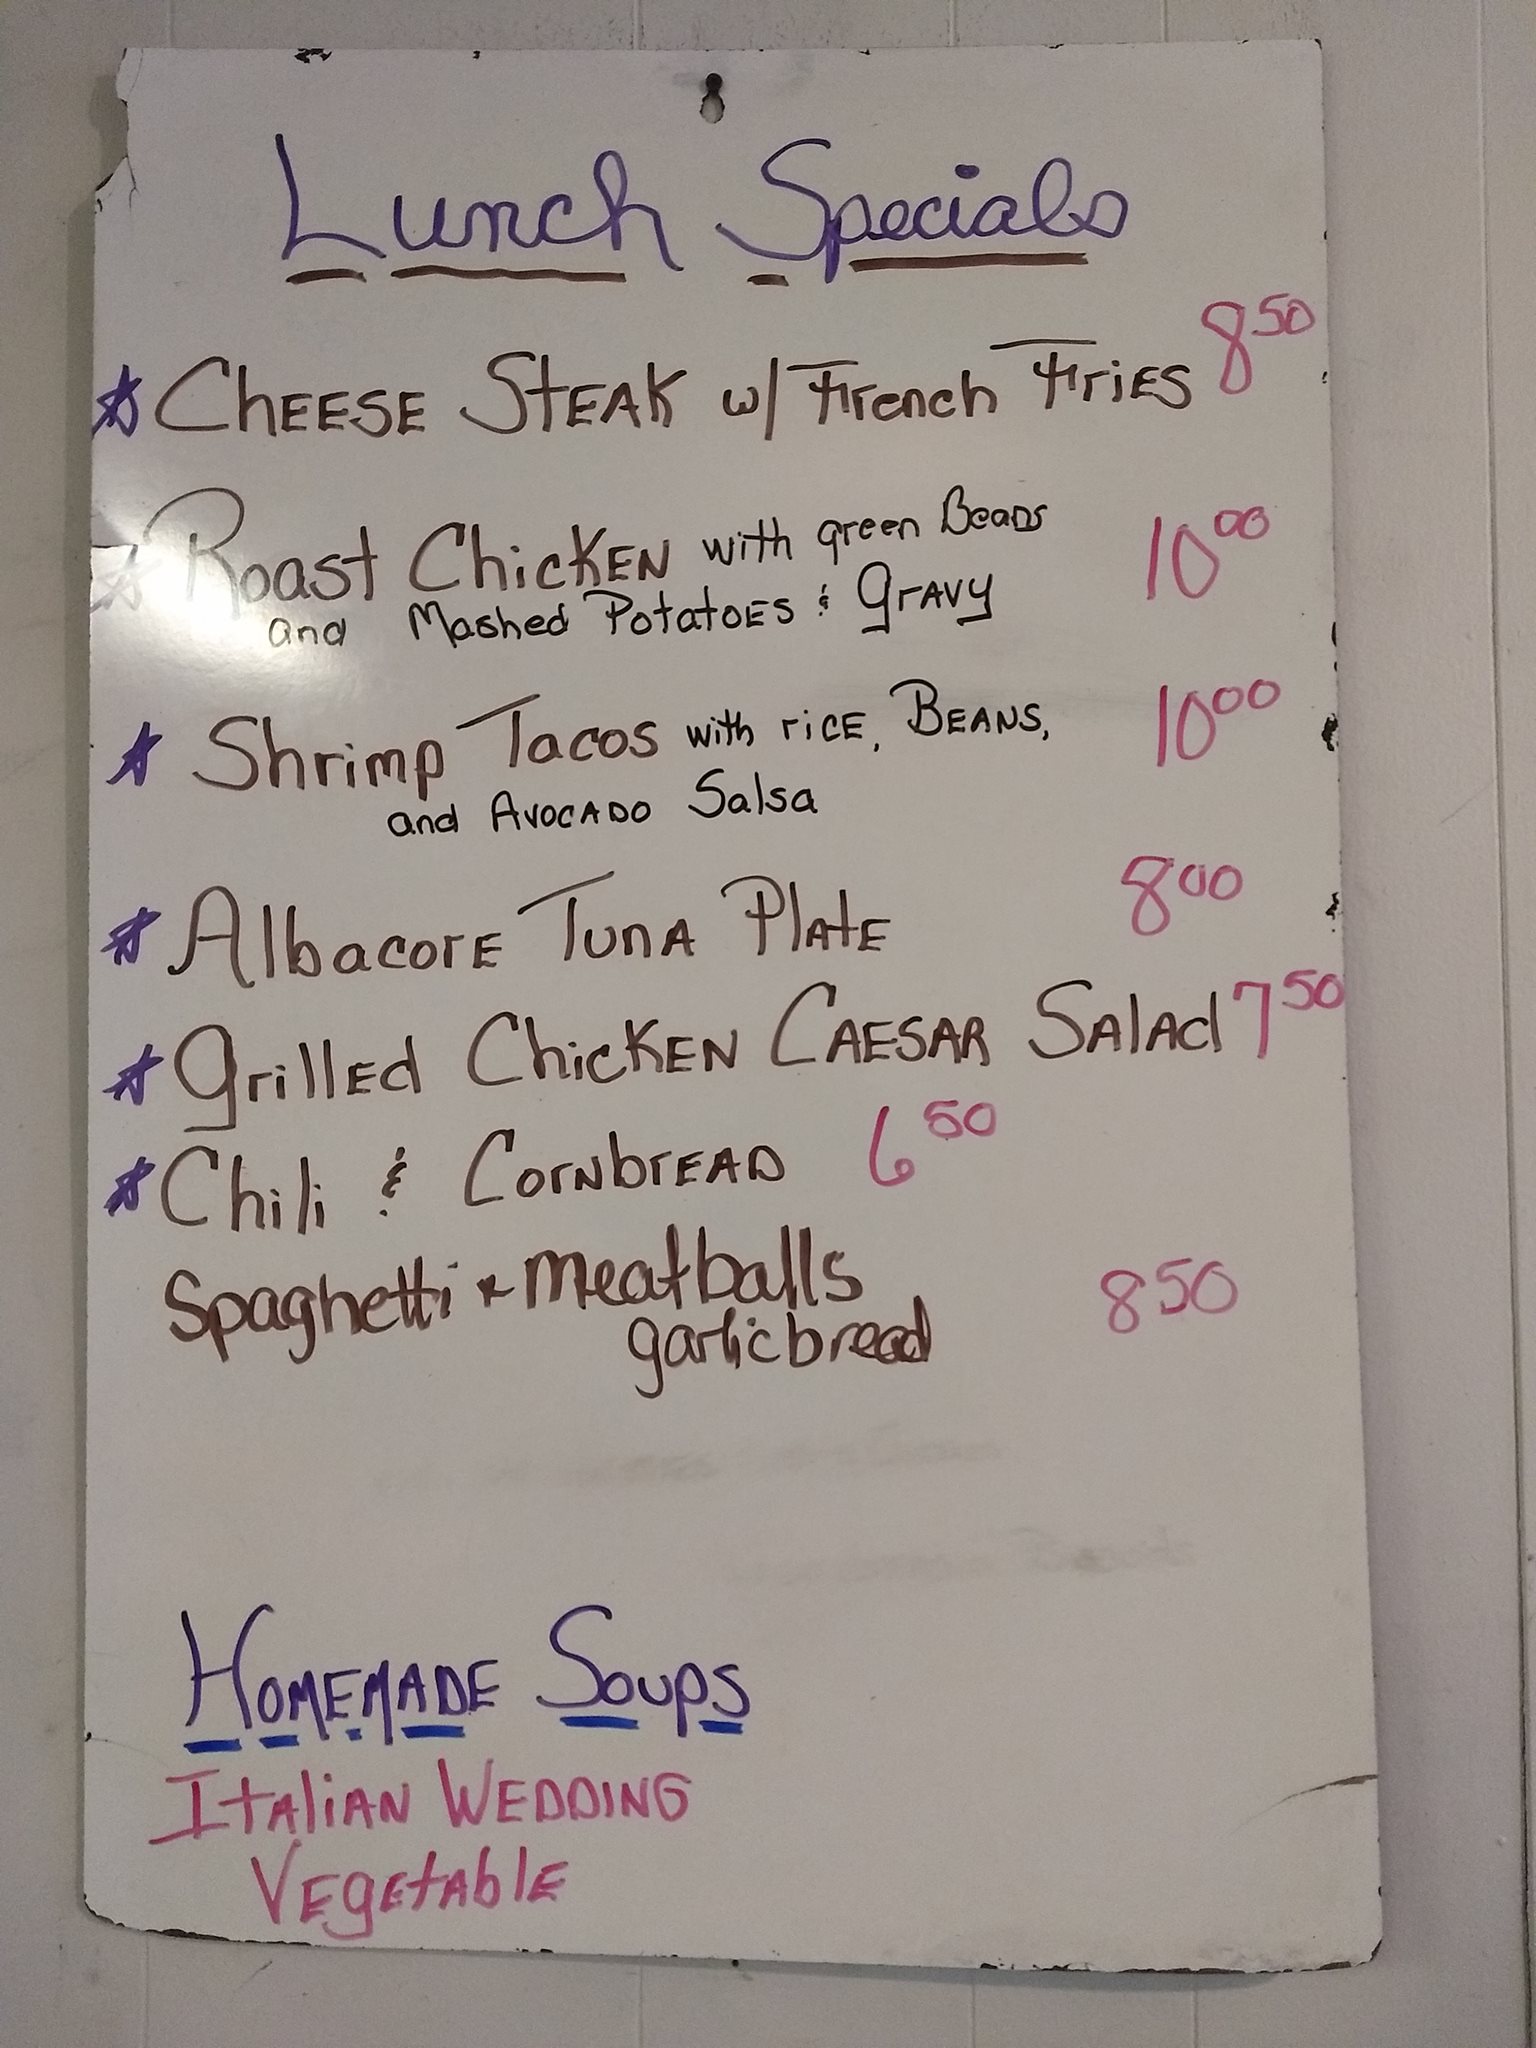 Lunch Specials
CHEESE STEAK w/ French Fries 8 50
Roast Chicken with green Beans 10 00
and Mashed Potatoes & Gravy
Shrimp Tacos with rice, Beans, 10 00
and Avocado Salsa
Albacore Tuna Plate 8 00
Grilled Chicken Caesar Salad 7 50
Chili & Cornbread 6 50
Spaghetti & meatballs 8 50
garlic bread
Homemade Soups
Italian Wedding
Vegetable